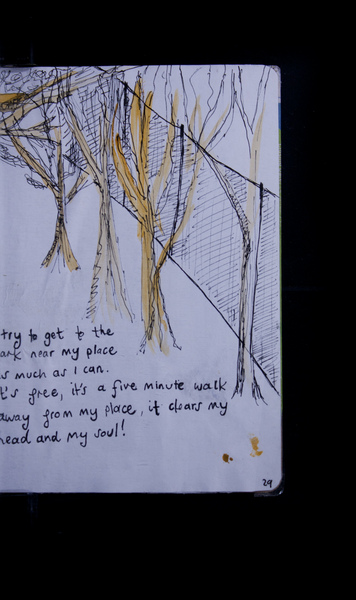 try to get to the
ark near my place
as much as I can.
t's free, it's a five minute walk
away from my place, it clears my
head and my soul!
29